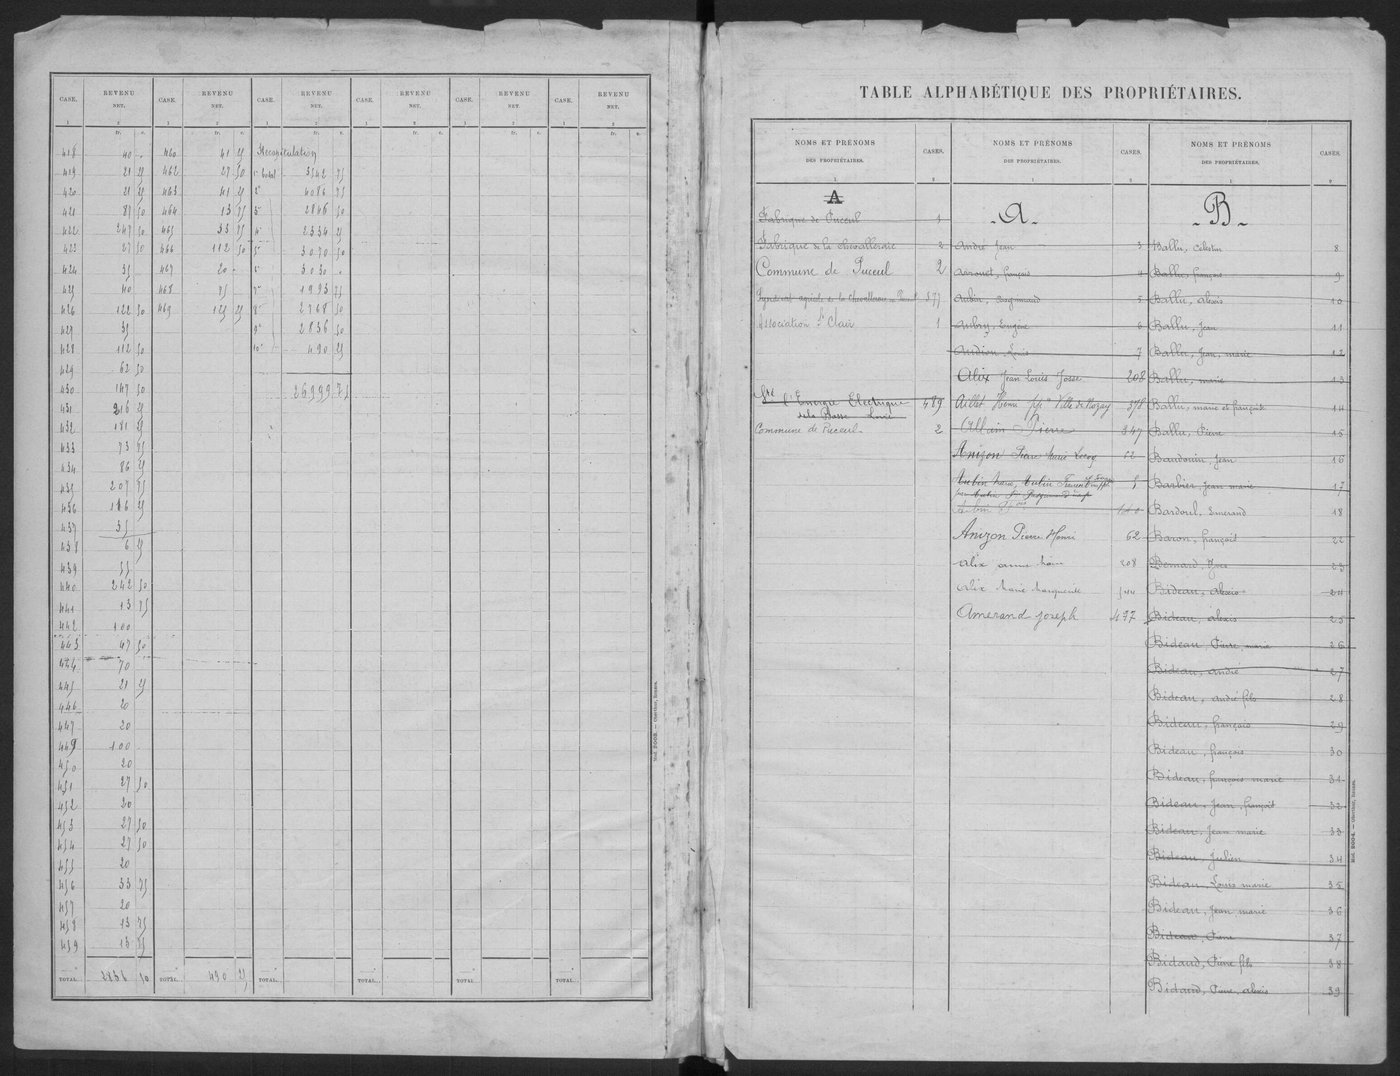 CASE. REVENU NET. CASE. REVENU NET. CASE. REVENU NET. CASE. REVENU NET. CASE. REVENU NET. CASE. REVENU NET.
1 2 1 2 1 2 1 2 1 2 1 2
fr. c. fr. c. fr. c. fr. c. fr. c. fr. c.
418 40 " 460 41 25 Récapitulation
419 21 25 462 27 50 1° total 3542 75
420 21 25 463 41 25 2° 4086 75
421 87 50 464 13 75 3° 2846 50
422 247 50 465 33 75 4° 2334 25
423 27 50 466 112 50 5° 3070 50
424 35 467 20 6° 3030
425 40 468 75 7° 1993 75
426 122 50 469 125 25 8° 2768 50
427 35 9° 2836 50
428 112 50 10° 490 25
429 62 50
430 147 50 26999 75
431 216 25
432 181 25
433 73 75
434 86 25
435 207 75
436 186 25
437 35
438 6 25
439 55
440 242 50
441 13 75
442 100
443 47 50
444 70
445 21 25
446 20
447 20
449 100
450 20
451 27 50
452 20
453 27 50
454 27 50
455 20
456 33 75
457 20
458 13 75
459 13 75
TOTAL 2836 50 TOTAL 490 25 TOTAL TOTAL TOTAL TOTAL
Mod. 2003. — Oberthur, Rennes.
TABLE ALPHABÉTIQUE DES PROPRIÉTAIRES.
NOMS ET PRÉNOMS DES PROPRIÉTAIRES. CASES. NOMS ET PRÉNOMS DES PROPRIÉTAIRES. CASES. NOMS ET PRÉNOMS DES PROPRIÉTAIRES. CASES.
1 2 1 2 1 2
A
Fabrique de Puceul 1
Fabrique de la Chevallerais 2
Commune de Puceul 2
Syndicat agricole de la Chevallerais en Puceul 377
Association St Clair 1
Sté d'Energie Electrique 489
de la Basse Loire
Commune de Puceul. 2
- A -
André Jean 3
Arrouet, françois 4
Aubin, Rogmund 5
Aubry, Eugène 6
Audion, Louis 7
Alix Jean Louis Josse 208
Aillet Henri Ville de Nozay 378
Allain Pierre 347
Anizon Pierre Marie Leroy 62
Aubin Marie, Aubin 5
Aubin
Anizon Pierre Henri 62
Alix anne Marie 208
Alix Marie Marguerite 144
Amerand Joseph 477
- B -
Ballu, Celestin 8
Ballu, françois 9
Ballu, alexis 10
Ballu, Jean 11
Ballu, Jean, marie 12
Ballu, marie 13
Ballu, marie et françoise 14
Ballu, Pierre 15
Baudouin, Jean 16
Barbier, Jean marie 17
Bardoul, Emerand 18
Baron, françois 22
Bernard, Yves 23
Bideau, alexis 24
Bideau, alexis 25
Bideau, Pierre, marie 26
Bideau, andré 27
Bideau, andré fils 28
Bideau, françois 29
Bideau, françois 30
Bideau, françois marie 31
Bideau, Jean, françois 32
Bideau, Jean marie 33
Bideau, Julien 34
Bideau, Louis marie 35
Bideau, Jean marie 36
Bideau, Pierre 37
Bidaud, Pierre fils 38
Bidaud, Pierre, alexis 39
Mod. 2004. — Oberthur, Rennes.